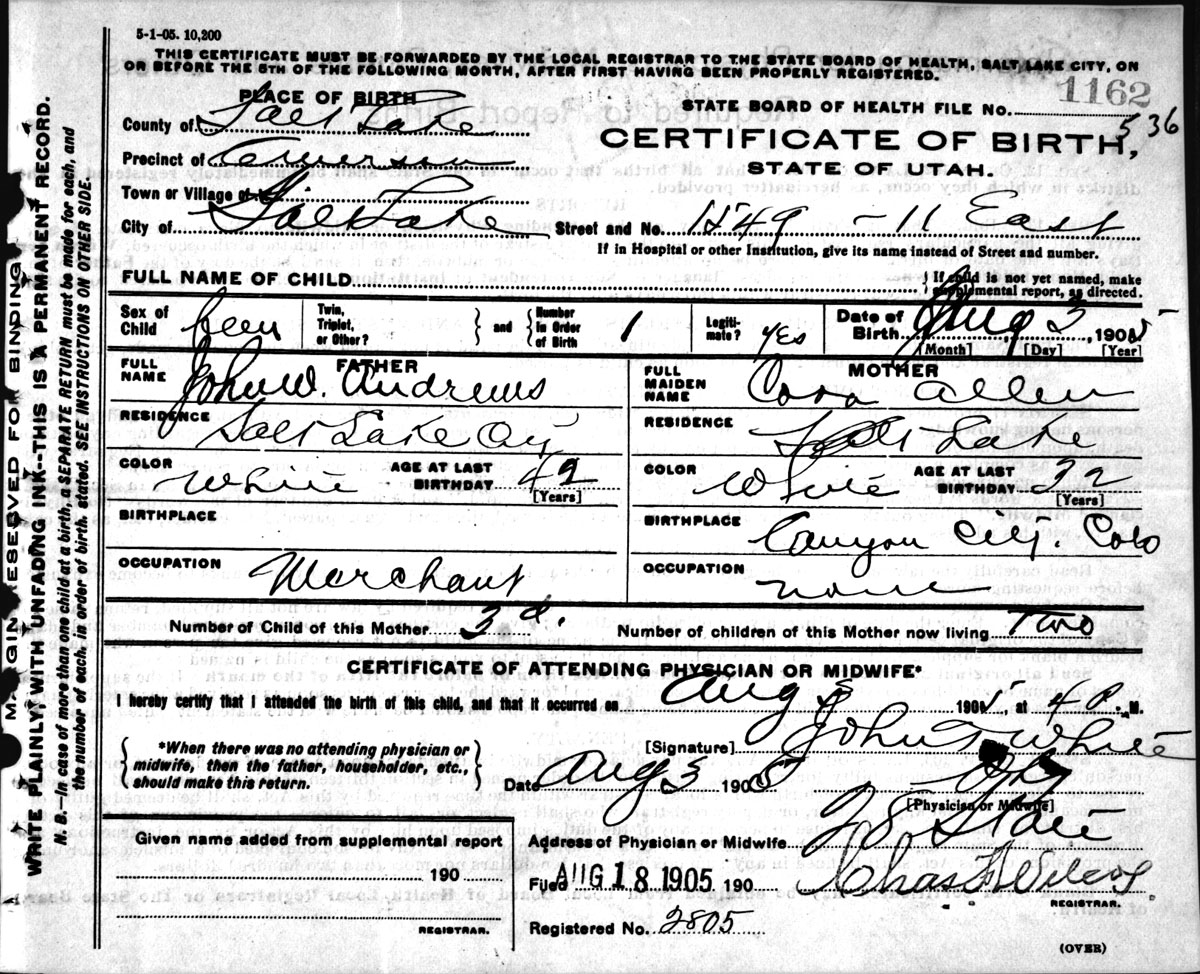 5-1-05. 10,200
THIS CERTIFICATE MUST BE FORWARDED BY THE LOCAL REGISTRAR TO THE STATE BOARD OF HEALTH, SALT LAKE CITY, ON
OR BEFORE THE 5TH OF THE FOLLOWING MONTH, AFTER FIRST HAVING BEEN PROPERLY REGISTERED.
PLACE OF BIRTH
County of Salt Lake
Precinct of
Town or Village of
City of Salt Lake
STATE BOARD OF HEALTH FILE NO. 1162
536
CERTIFICATE OF BIRTH,
STATE OF UTAH.
Street and No. 1149 - 11 East
If in Hospital or other Institution, give its name instead of Street and number.
FULL NAME OF CHILD
If child is not yet named, make
supplemental report, as directed.
Sex of Child
Twin, Triplet, or Other?
and
Number in Order of Birth 1
Legitimate? yes
Date of Birth Aug 3, 1905
[Month] [Day] [Year]
FATHER
FULL NAME John W. Andrews
RESIDENCE Salt Lake City
COLOR White
AGE AT LAST BIRTHDAY 42
[Years]
BIRTHPLACE
OCCUPATION Merchant
MOTHER
FULL MAIDEN NAME Cora Allen
RESIDENCE Salt Lake
COLOR White
AGE AT LAST BIRTHDAY 32
[Years]
BIRTHPLACE Canyon City. Colo
OCCUPATION none
Number of Child of this Mother 3d.
Number of children of this Mother now living Two
CERTIFICATE OF ATTENDING PHYSICIAN OR MIDWIFE*
I hereby certify that I attended the birth of this child, and that it occurred on Aug 3 1905, at 4 P. M.
*When there was no attending physician or
midwife, then the father, householder, etc.,
should make this return.
[Signature] John T White
Date Aug 3 1905
[Physician or Midwife]
Address of Physician or Midwife
Given name added from supplemental report
190
REGISTRAR.
Filed AUG 18 1905 190
Chas Wilcox
REGISTRAR.
Registered No. 2805
(OVER)
MARGIN RESERVED FOR BINDING
WRITE PLAINLY, WITH UNFADING INK--THIS IS A PERMANENT RECORD.
N. B.--In case of more than one child at a birth, a SEPARATE RETURN must be made for each, and
the number of each, in order of birth, stated. SEE INSTRUCTIONS ON OTHER SIDE.